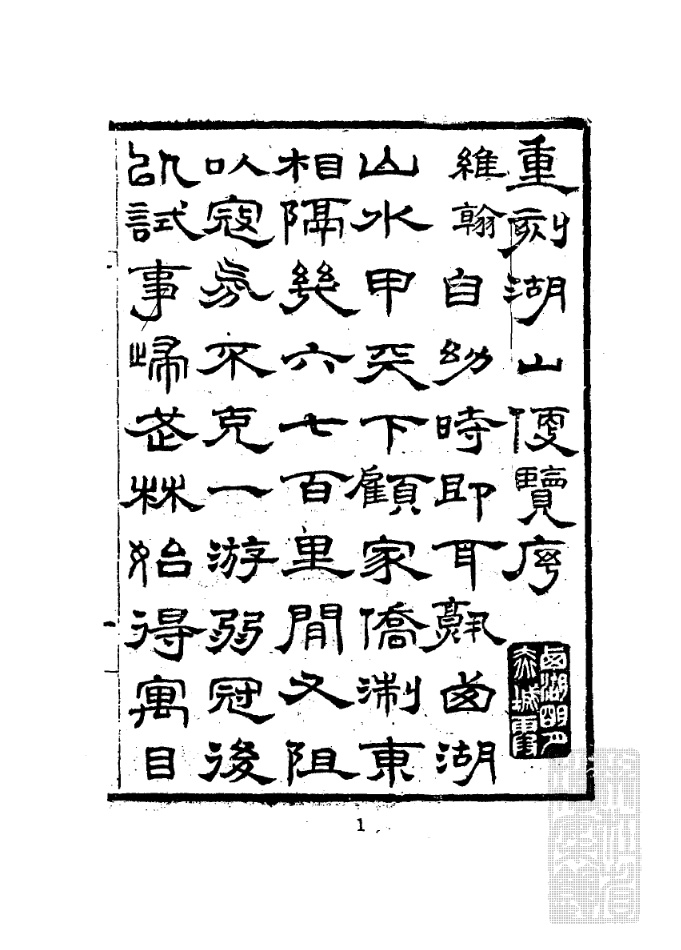 重刻湖山便覽序
維翰自幼時即耳熟西湖
山水甲天下顧家僑淛東
相隔幾六七百里閒又阻
以寇氛不克一游弱冠後
以試事歸武林始得寓目
西湖明月
赤城霞
1